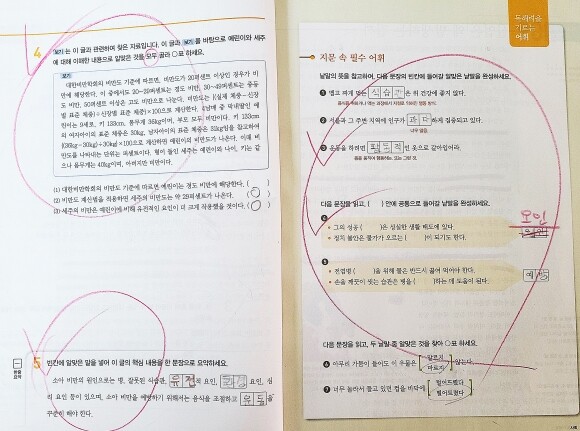 4 보기 는 이 글과 관련하여 찾은 자료입니다. 이 글과 보기 를 바탕으로 예린이와 세주
에 대해 이해한 내용으로 알맞은 것을 모두 골라 ○표 하세요.
보기
대한비만학회의 비만도 기준에 따르면, 비만도가 20퍼센트 이상인 경우가 비
만에 해당한다. 이 중에서도 20~29퍼센트는 경도 비만, 30~49퍼센트는 중등
도 비만, 50퍼센트 이상은 고도 비만으로 나눈다. 비만도는 {(실제 체중-신장
별 표준 체중)÷신장별 표준 체중}×100으로 계산한다. 4남매 중 막내딸인 예
린이는 9세로, 키 133cm, 몸무게 36kg이며, 부모 모두 비만이다. 키 133cm
의 여자아이의 표준 체중은 30kg, 남자아이의 표준 체중은 31kg임을 참고하여
{(36kg-30kg)÷30kg}×100으로 계산하면 예린이의 비만도가 나온다. 이때 비
만도를 나타내는 단위는 퍼센트이다. 형이 둘인 세주는 예린이와 나이, 키는 같
으나 몸무게는 40kg이며, 아버지만 비만이다.
(1) 대한비만학회의 비만도 기준에 따르면 예린이는 경도 비만에 해당한다. ( )
(2) 비만도 계산법을 적용하면 세주의 비만도는 약 29퍼센트가 나온다. ( ○ )
(3) 세주의 비만은 예린이에 비해 유전적인 요인이 더 크게 작용했을 것이다. ( ○ )
5 빈칸에 알맞은 말을 넣어 이 글의 핵심 내용을 한 문장으로 요약하세요.
소아 비만의 원인으로는 병, 잘못된 식습관, 유전적 요인, 환경 요인, 심
리 요인 등이 있으며, 소아 비만을 예방하기 위해서는 음식을 조절하고 운동을
꾸준히 해야 한다.
독해력을
키우는
어휘
지문 속 필수 어휘
낱말의 뜻을 참고하여, 다음 문장의 빈칸에 들어갈 알맞은 낱말을 완성하세요.
1 맵고 짜게 먹는 식습관은 위 건강에 좋지 않다.
2 서울과 그 주변 지역에 인구가 과다하게 집중되고 있다.
너무 많음.
3 운동을 하려면 활동적인 옷으로 갈아입어라.
다음 문장을 읽고, ( ) 안에 공통으로 들어갈 낱말을 완성하세요.
4
• 그의 성공 ( )은 성실한 생활 태도에 있다.
• 정치 불안은 물가가 오르는 ( )이 되기도 한다.
요인
5
• 전염병 ( )을 위해 물은 반드시 끓여 먹어야 한다.
• 손을 깨끗이 씻는 습관은 병을 ( )하는 데 도움이 된다.
예방
다음 문장을 읽고, 두 낱말 중 알맞은 것을 찾아 ○표 하세요.
6 아무리 가뭄이 들어도 이 우물은 [ 말르지 / 마르지 ] 않는다.
7 너무 놀라서 들고 있던 컵을 바닥에 [ 떨어드렸다 / 떨어트렸다 ]